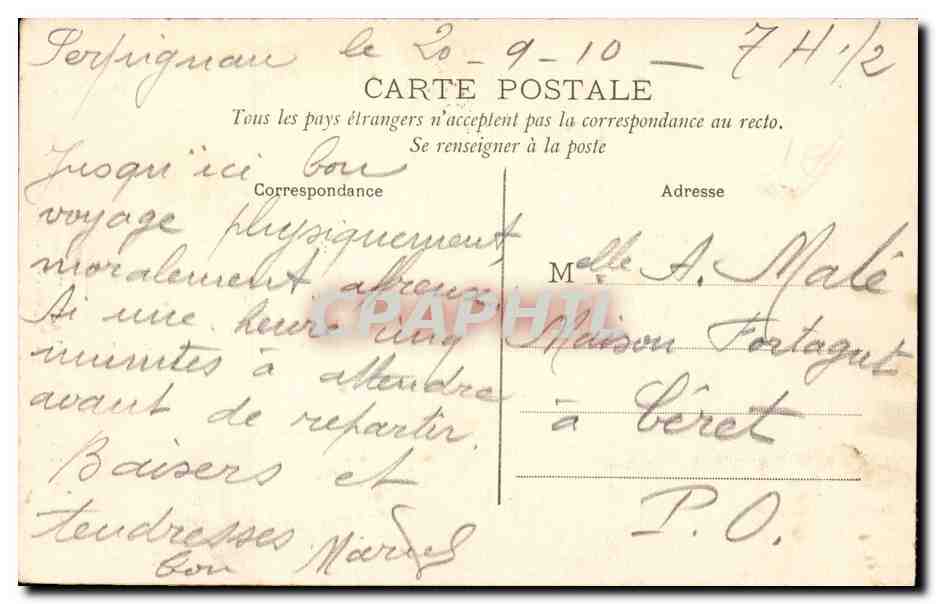 Perpignan le 20-9-10 — 7 H 1/2
CARTE POSTALE
Tous les pays étrangers n'acceptent pas la correspondance au recto.
Se renseigner à la poste
Jusqu'ici bon
Correspondance
voyage physiquement,
moralement affreux.
Ai une heure cinq
minutes à attendre
avant de repartir.
Baisers et
tendresses
bon Marcel
Adresse
Melle A. Malé
Maison Fortagut
à Céret
P.O.
CPARHTL